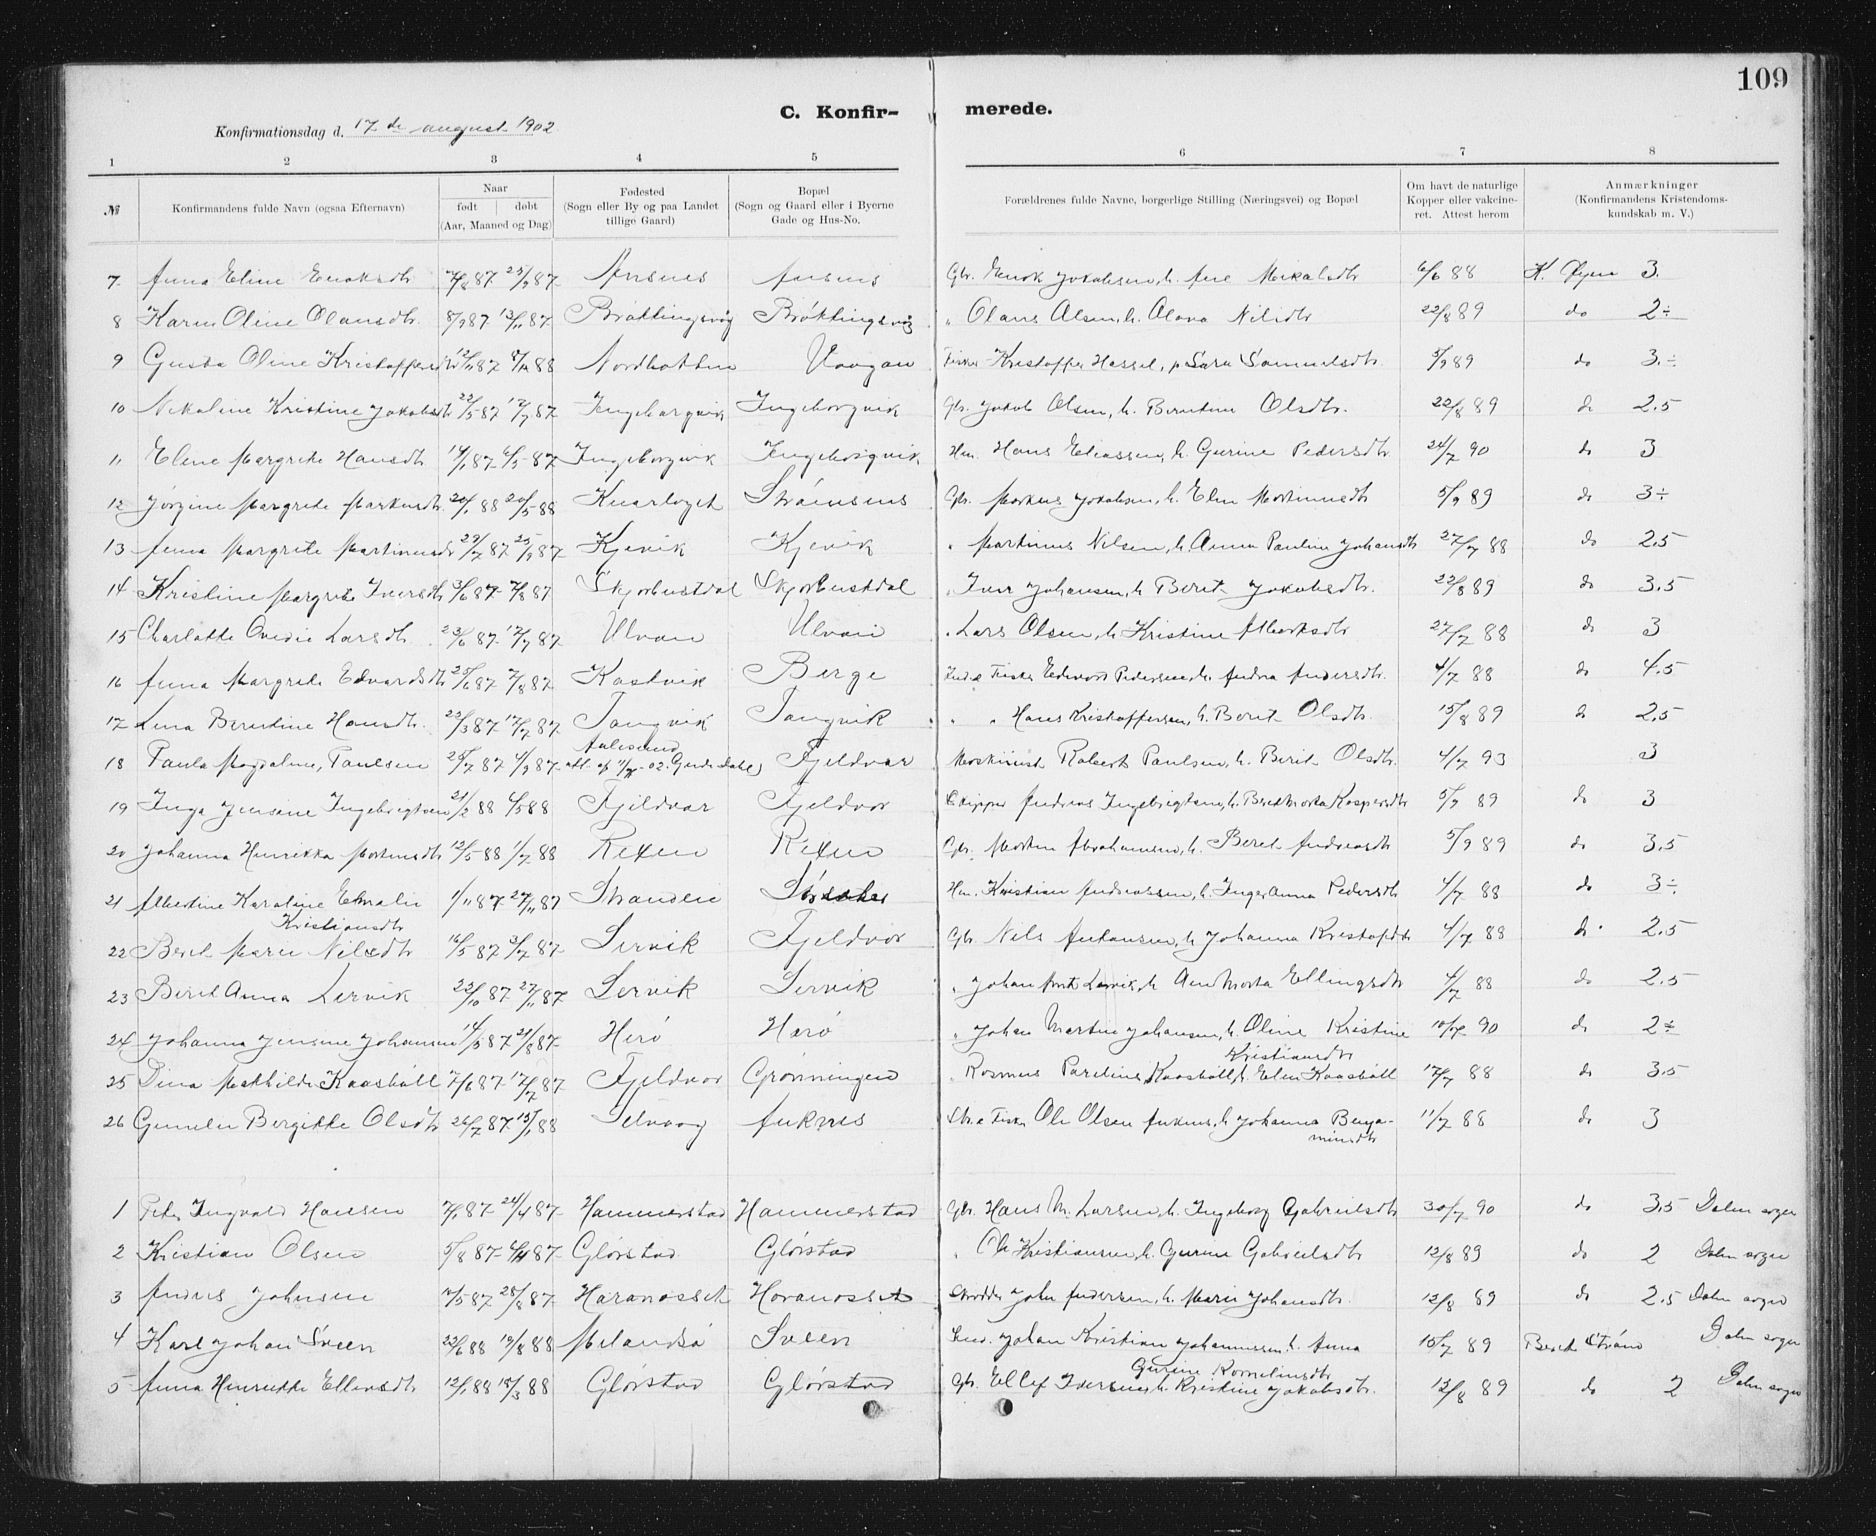 109
C. Konfir- merede.
Konfirmationsdag d. 17 de august 1902
1 2 3 4 5 6 7 8
№ Konfirmandens fulde Navn (ogsaa Efternavn) Naar født døbt (Aar, Maaned og Dag) Fødested (Sogn eller By og paa Landet tillige Gaard) Bopæl (Sogn og Gaard eller i Byerne Gade og Hus-No. Forældrenes fulde Navne, borgerlige Stilling (Næringsvei) og Bopæl Om havt de naturlige Kopper eller vakcineret. Attest herom Anmærkninger (Konfirmandens Kristendomskundskab m. V.)
7 Anna Eline Enoksdtr 7/8 87 25/9 87 Ansnes Ansnes Gbr. Enok Jakobsen, h. Ane Mikalsdtr 6/6 88 K. Øyen 3
8 Karen Oline Olausdtr. 8/9 87 13/11 87 Brattingsvåg Bråttingsvig " Olaus Olsen, h. Olava Nilsdtr 22/8 89 do 2÷
9 Gusta Oline Kristoffersdtr 12/11 87 88 Nordbotten Vaagan Fisker Kristoffer Hassel, Sara Samuelsdtr 5/9 89 do 3÷
10 Nikoline Kristine Jakobsdtr 22/5 87 17/7 87 Ingeborgvik Ingeborgvik Gbr. Jakob Olsen, h. Berntine Olsdtr. 22/8 89 do 2.5
11 Eline Margrete Hansdtr 14/1 87 6/5 87 Ingeborgvik Ingeborgvik Hm. Hans Eliassen, h. Gurine Pedersdtr 24/7 90 do 3
12 Jørgine Margrete Markusdtr. 20/1 88 20/5 88 Knarlaget Strømsnes Gbr. Markus Jakobsen, h. Elen Martinusdtr 5/9 89 do 3÷
13 Anna Margrete Martinusdtr 22/7 87 25/9 87 Kjevik Kjevik " Martinus Nilsen, h. Anna Pauline Johansdtr 27/7 88 do 2.5
14 Kristine Margrete Iversdtr 3/6 87 7/8 87 Skjørbustdal Skjorbustdal " Iver Johansen, h. Beret Jakobsdtr. 22/8 89 do 3.5
15 Charlotte Ovidie Larsdtr. 23/6 87 17/7 87 Ulvan Ulvan " Lars Olsen, h. Kristine Albertsdtr 27/7 88 do 3
16 Anna Margrete Edvardsdtr 25/6 87 7/8 87 Kastvik Berge Inds. Fisker Edvard Pedersen, h. Andrea Andersdtr. 4/7 88 do 4.5
17 Lina Berntine Hansdtr. 25/3 87 17/7 87 Tangvik Tangvik " " Hans Kristoffersen, h. Berit Olsdtr. 15/8 89 do 2.5
Aalesund
18 Paula Magdalene Paulsen 25/7 87 4/9 87 02 Fjeldvær Maskinist Robert Paulsen, h. Berit Olsdtr. 4/7 93 3
19 Inga Jensine Ingebrigtsen 21/2 88 6/5 88 Fjeldvær Fjeldvær Skipper Andreas Ingebrigtsen, h. Berit Marta Kaspersdtr 5/9 89 do 3
20 Johanna Henrikka Mortensdtr 12/5 88 1/7 88 Rexen Rexen Gbr. Morten Abrahamsen, h. Beret Andreasdtr 5/9 89 do 3.5
21 Albertine Karoline Emalie 1/11 87 27/11 87 Strandeie Hm. Kristian Andreassen, h. Inger Anna Pedersdtr 4/7 88 do 3÷
Kristiansdtr
22 Beret Marie Nilsdtr 16/5 87 3/7 87 Lervik Fjeldvær Gbr. Nils Antonsen, h. Johanna Kristofdtr 4/7 88 do 2.5
23 Beret Anna Lervik 23/10 87 27/11 87 Lervik Lervik " Johan Lervik, h. Marta Ellingsdtr 4/7 88 do 2.5
24 Johanna Jensine Johansen 14/5 87 21/8 87 Herø Herø " Johan Martin Johansen, h. Oline Kristine 10/7 90 do 2÷
Kristiansdtr
25 Dina Mathilde Kaasbøll 7/6 87 17/7 87 Fjeldvær Grønningen " Rasmus Kaasbøll, h. Elen Kaasbøll 17/7 88 do 3.5
26 Gunelie Bergitte Olsdtr 26/7 87 15/1 88 Setvaag Auknes Fisker Ole Olsen Auknes, h. Johanna Benja- 11/7 88 do 3
minsdtr
1 Peter Ingvald Hansen 7/1 87 24/4 87 Hammerstad Hammerstad Gbr. Hans M. Larsen, h. Ingeborg Gabrielsdtr 30/7 90 do 3.5 Dolm sogn
2 Kristian Olsen 5/8 87 87 Glørstad Glørstad " Ole Kristiansen, h. Gurine Gabrielsdtr 12/8 89 do 2 Dolm sogn
3 Anders Johnsen 7/5 87 28/8 87 Havnnosset Havnnosset Skrædder John Andersen, h. Marie Johansdtr. 12/8 89 do 2.5 Dolm sogn
4 Karl Johan Sveen 22/6 88 19/8 88 Melandsø Sveen Johan Kristian Johannessen, h. Anna 15/7 89 Berit Strøm Dolm sogn
Gurine Kornelinsdtr
5 Anna Henrikke Ellevsdtr 12/1 88 18/3 88 Glørstad Glørstad Gbr. Ellef Iversen, h. Kristine Jakobsdtr. 12/8 89 do 2 Dolm sogn